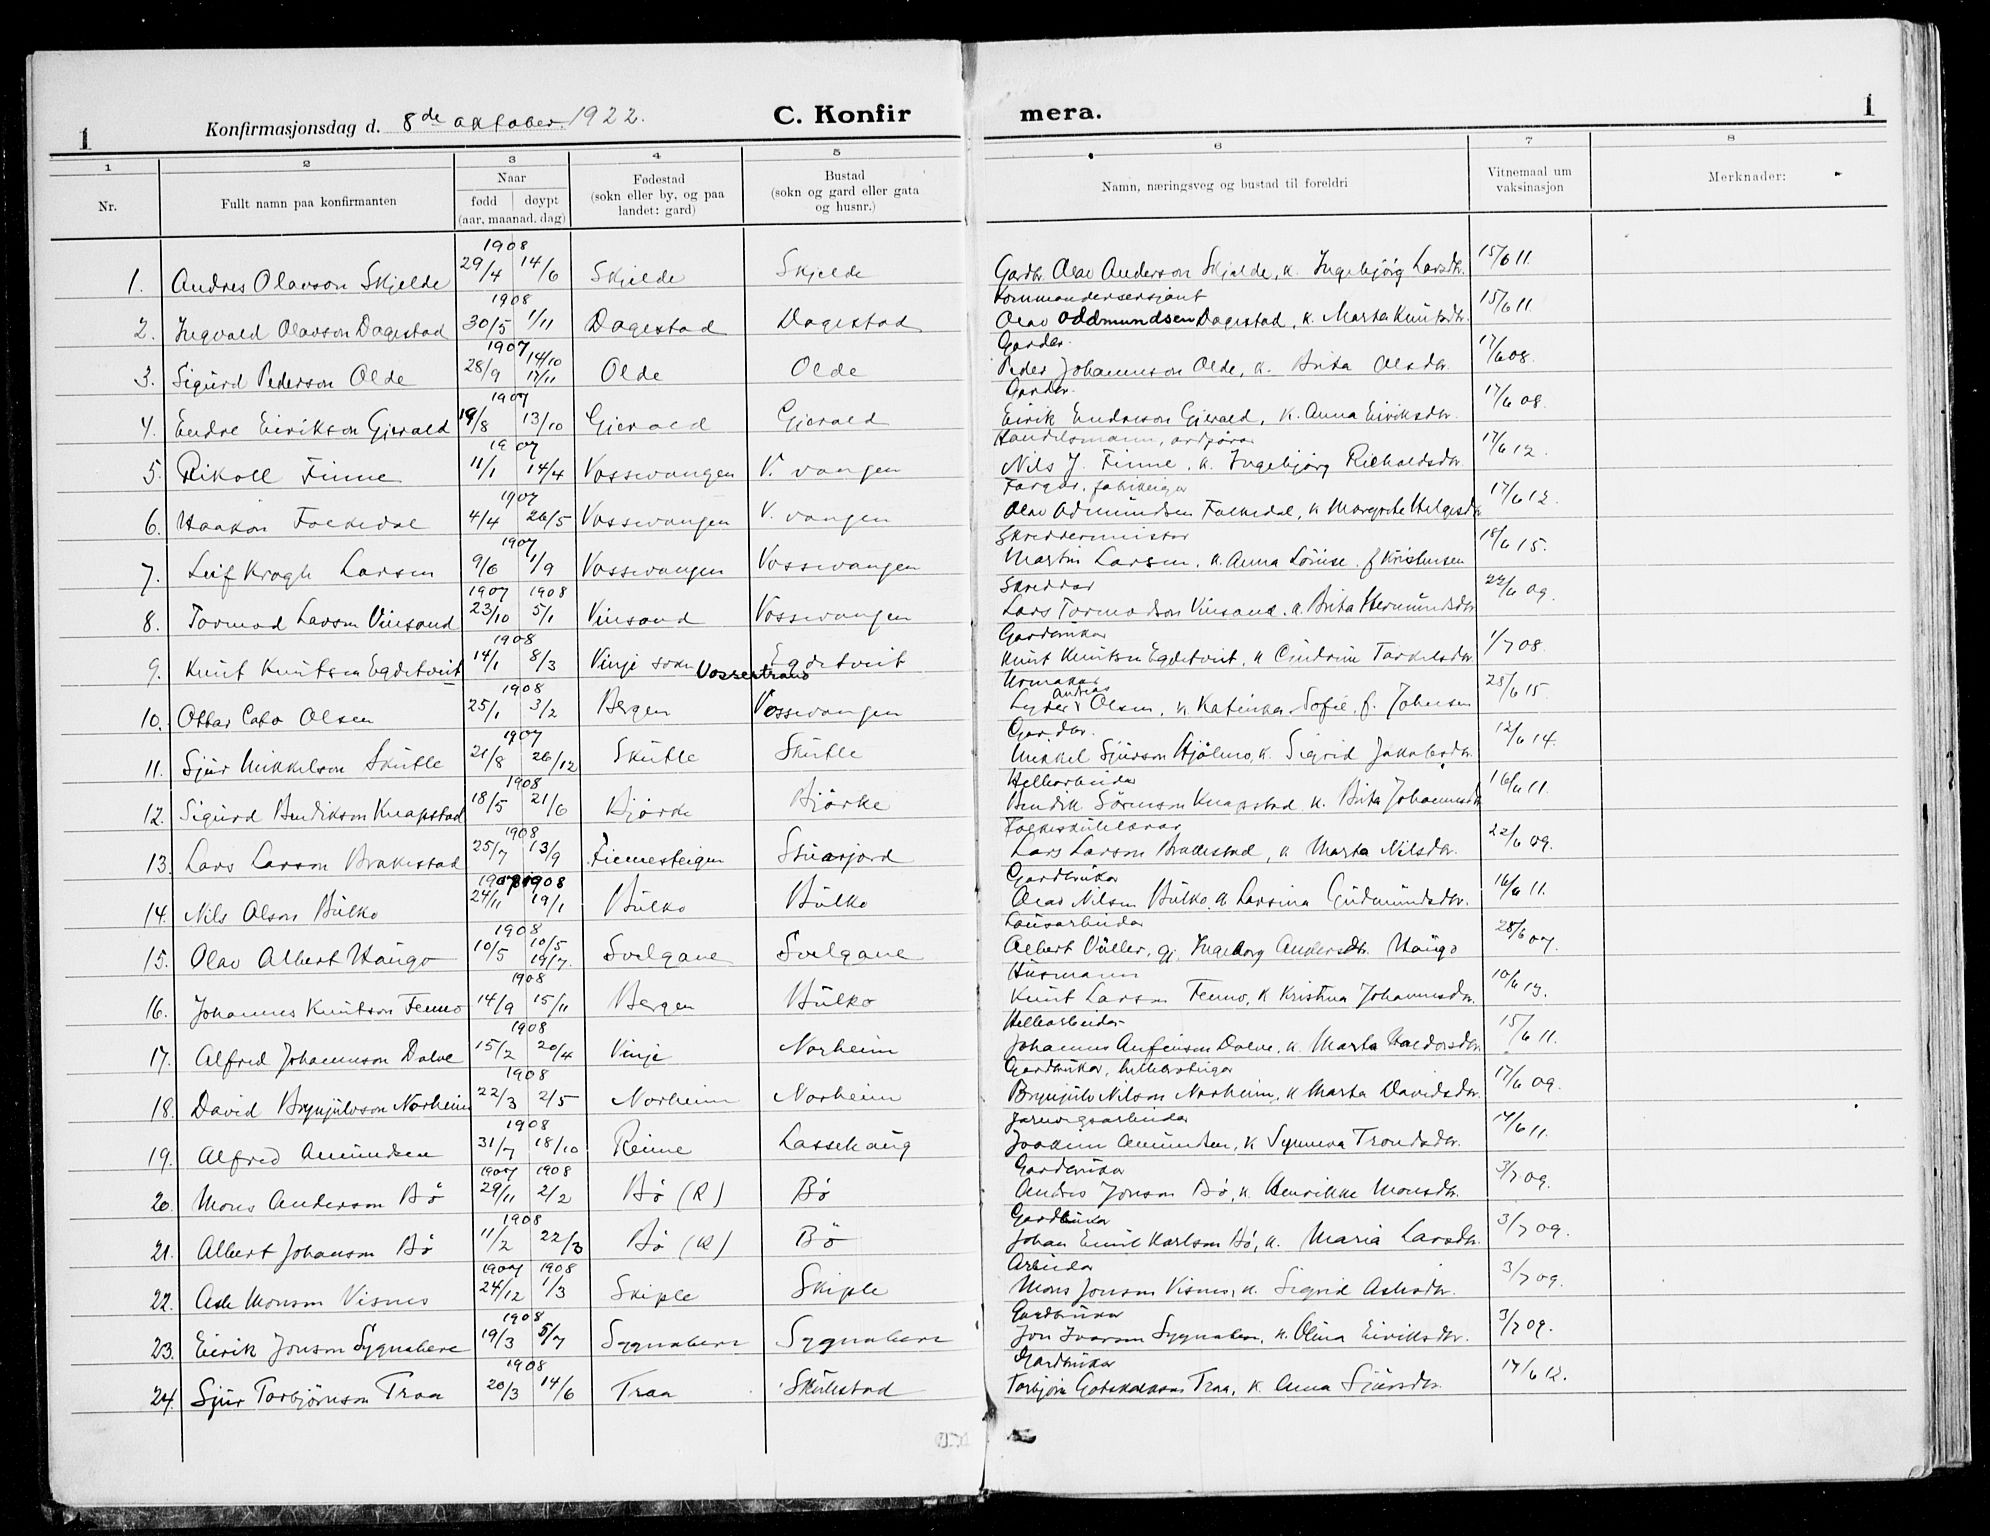 1 Konfirmasjonsdag d. 8de oktober 1922. C. Konfir mera. 1
1 2 3 4 5 6 7 8
Nr. Fullt namn paa konfirmanten Naar fødd døypt (aar, maanad, dag) Fødestad (sokn eller by, og paa landet: gard) Bustad (sokn og gard eller gata og husnr.) Namn, næringsveg og bustad til foreldri Vitnemaal um vaksinasjon Merknader:
1908
1. Andres Olavson Skjelde 29/4 14/6 Skjelde Skjelde Gardbr. Olav Anderson Skjelde, k. Ingebjörg Larsdtr. 15/6 11.
1908 Kommandersersjant
2. Ingvald Olavson Dagestad 30/5 1/11 Dagestad Dagestad Olav Oddmundsen Dagestad, k. Marta Knutsdtr. 15/6 11.
1907 Gardbr.
3. Sigurd Pederson Olde 28/9 14/10 17/11 Olde Olde Peder Johannesson Olde, k. Brita Olsdtr. 17/6 08.
1907 Gardbr.
4. Endre Eirikson Gjerald 19/8 13/10 Gjerald Gjerald Eirik Endreson Gjerald, k. Anna Eiriksdtr. 17/6 08.
1907 Handelsmann, ordførar
5. Rikoll Finne 11/1 14/4 Vossevangen V. vangen Nils J. Finne, k. Ingebjørg Richoldsdtr. 17/6 12.
1907 Fargar, fabrikeigar
6. Haakon Folkedal 4/4 26/5 Vossevangen V. vangen Olav Odmundsen Folkedal, k. Margrete Helgesdtr. 17/6 12.
1907 Skreddermeister
7. Leif Krogh Larsen 9/6 1/9 Vossevangen Vossevangen Martin Larsen, k. Anna Lovise f. Kristensen 18/6 15.
1907 1908 Skreddar
8. Tormod Larsen Vinsand 23/10 5/1 Vinsand Vossevangen Lars Tormodson Vinsand, k. Brita Hermundsdtr. 22/6 09.
1908 Gardbrukar
9. Knut Knutsen Egdetveit 14/1 8/3 Vinje sokn Vossestrand Egdetveit Knut Knutsen Egdetveit, k. Torkelsdtr. 1/7 08.
1908 Urmakar
10. Ottar Cato Olsen 25/1 3/2 Bergen Vossevangen Lyder Andreas Olsen, k. Katinka Sofie, f. Johnsen 28/6 15.
1907 Gardbr.
11. Sjur Mikkelson Skutle 21/8 26/12 Skutle Skutle Mikkel Sjurson Hjølmo, k. Sigrid Jakobsdtr. 12/6 14.
1908 Hellearbeidar
12. Sigurd Bendikson Knapstad 18/5 21/6 Bjørke Bjørke Bendik Sørenson Knapstad, k. Brita Johannesdtr. 16/6 11.
1908 Folkeskulelærar
13. Lars Larson Brakestad 25/7 13/9 Finnesteigen Lars Larson Brakestad, k. Marta Nilsdtr. 22/6 09.
1907 1908 Gardbrukar
14. Nils Olson Bulko 24/11 19/1 Bulko Bulko Olav Nilsen Bulko, k. Larsina Gudmundsdtr. 16/6 11.
1908 Lausarbeidar
15. Olav Albert Haugo 10/5 10/5 19/7. Svelgane Svelgane Albert Vüller, gj. Ingeborg Andersdtr. Haugo 28/6 07.
1908 Husmann
16. Johannes Knutson Fenno 14/9 15/11 Bergen Bulko Knut Larson Fenno, k. Kristina Johannesdtr. 10/6 13.
1908 Hellearbeidar
17. Alfred Johanneson Dolve 15/2 20/4 Vinje Norheim Johannes Anfinsen Dolve, k. Marta Haldorsdtr. 15/6 11.
1908 Gardbrukar, hellebroteigar
18. David Brynjulvson Norheim 22/3 2/5 Norheim Norheim Brynjulv Nilson Norheim, k. Marta Davidsdtr. 17/6 09.
1908 Jarnvegsarbeidar
19. Alfred Amundsen 31/7 18/10 Reime Lassehaug Joakim Amundsen, k. Synneva Trondsdtr. 14/6 11.
1907 1908 Gardbrukar
20. Mons Anderson Bø 29/11 2/2 Bø (R) Bø Andres Jonson Bø, k. Henrikke Monsdtr. 3/7 09.
1908 Gardbrukar
21. Albert Johanson Bø 11/2 22/3 Bø (R) Bø Johan Emil Karlson Bø, k. Maria Larsdtr. 3/7 09.
1907 1908 Arbeidar
22. Asle Monsen Visnes 24/12 1/3 Skiple Skiple Mons Jonson Visnes, k. Sigrid Aslesdtr. 3/7 09.
1908 Gardbrukar
23. Eirik Jonson Sygnabere 19/3 5/7 Sygnabere Sygnabere Jon Ivarson Sygnabere, k. Olina Eiriksdtr. 3/7 09.
1908 Gardbrukar
24. Sjur Torbjørnson Traa 20/3 14/6 Traa Skulestad Torbjørn Gotskalkson Traa, k. Anna Sjursdtr. 17/6 12.